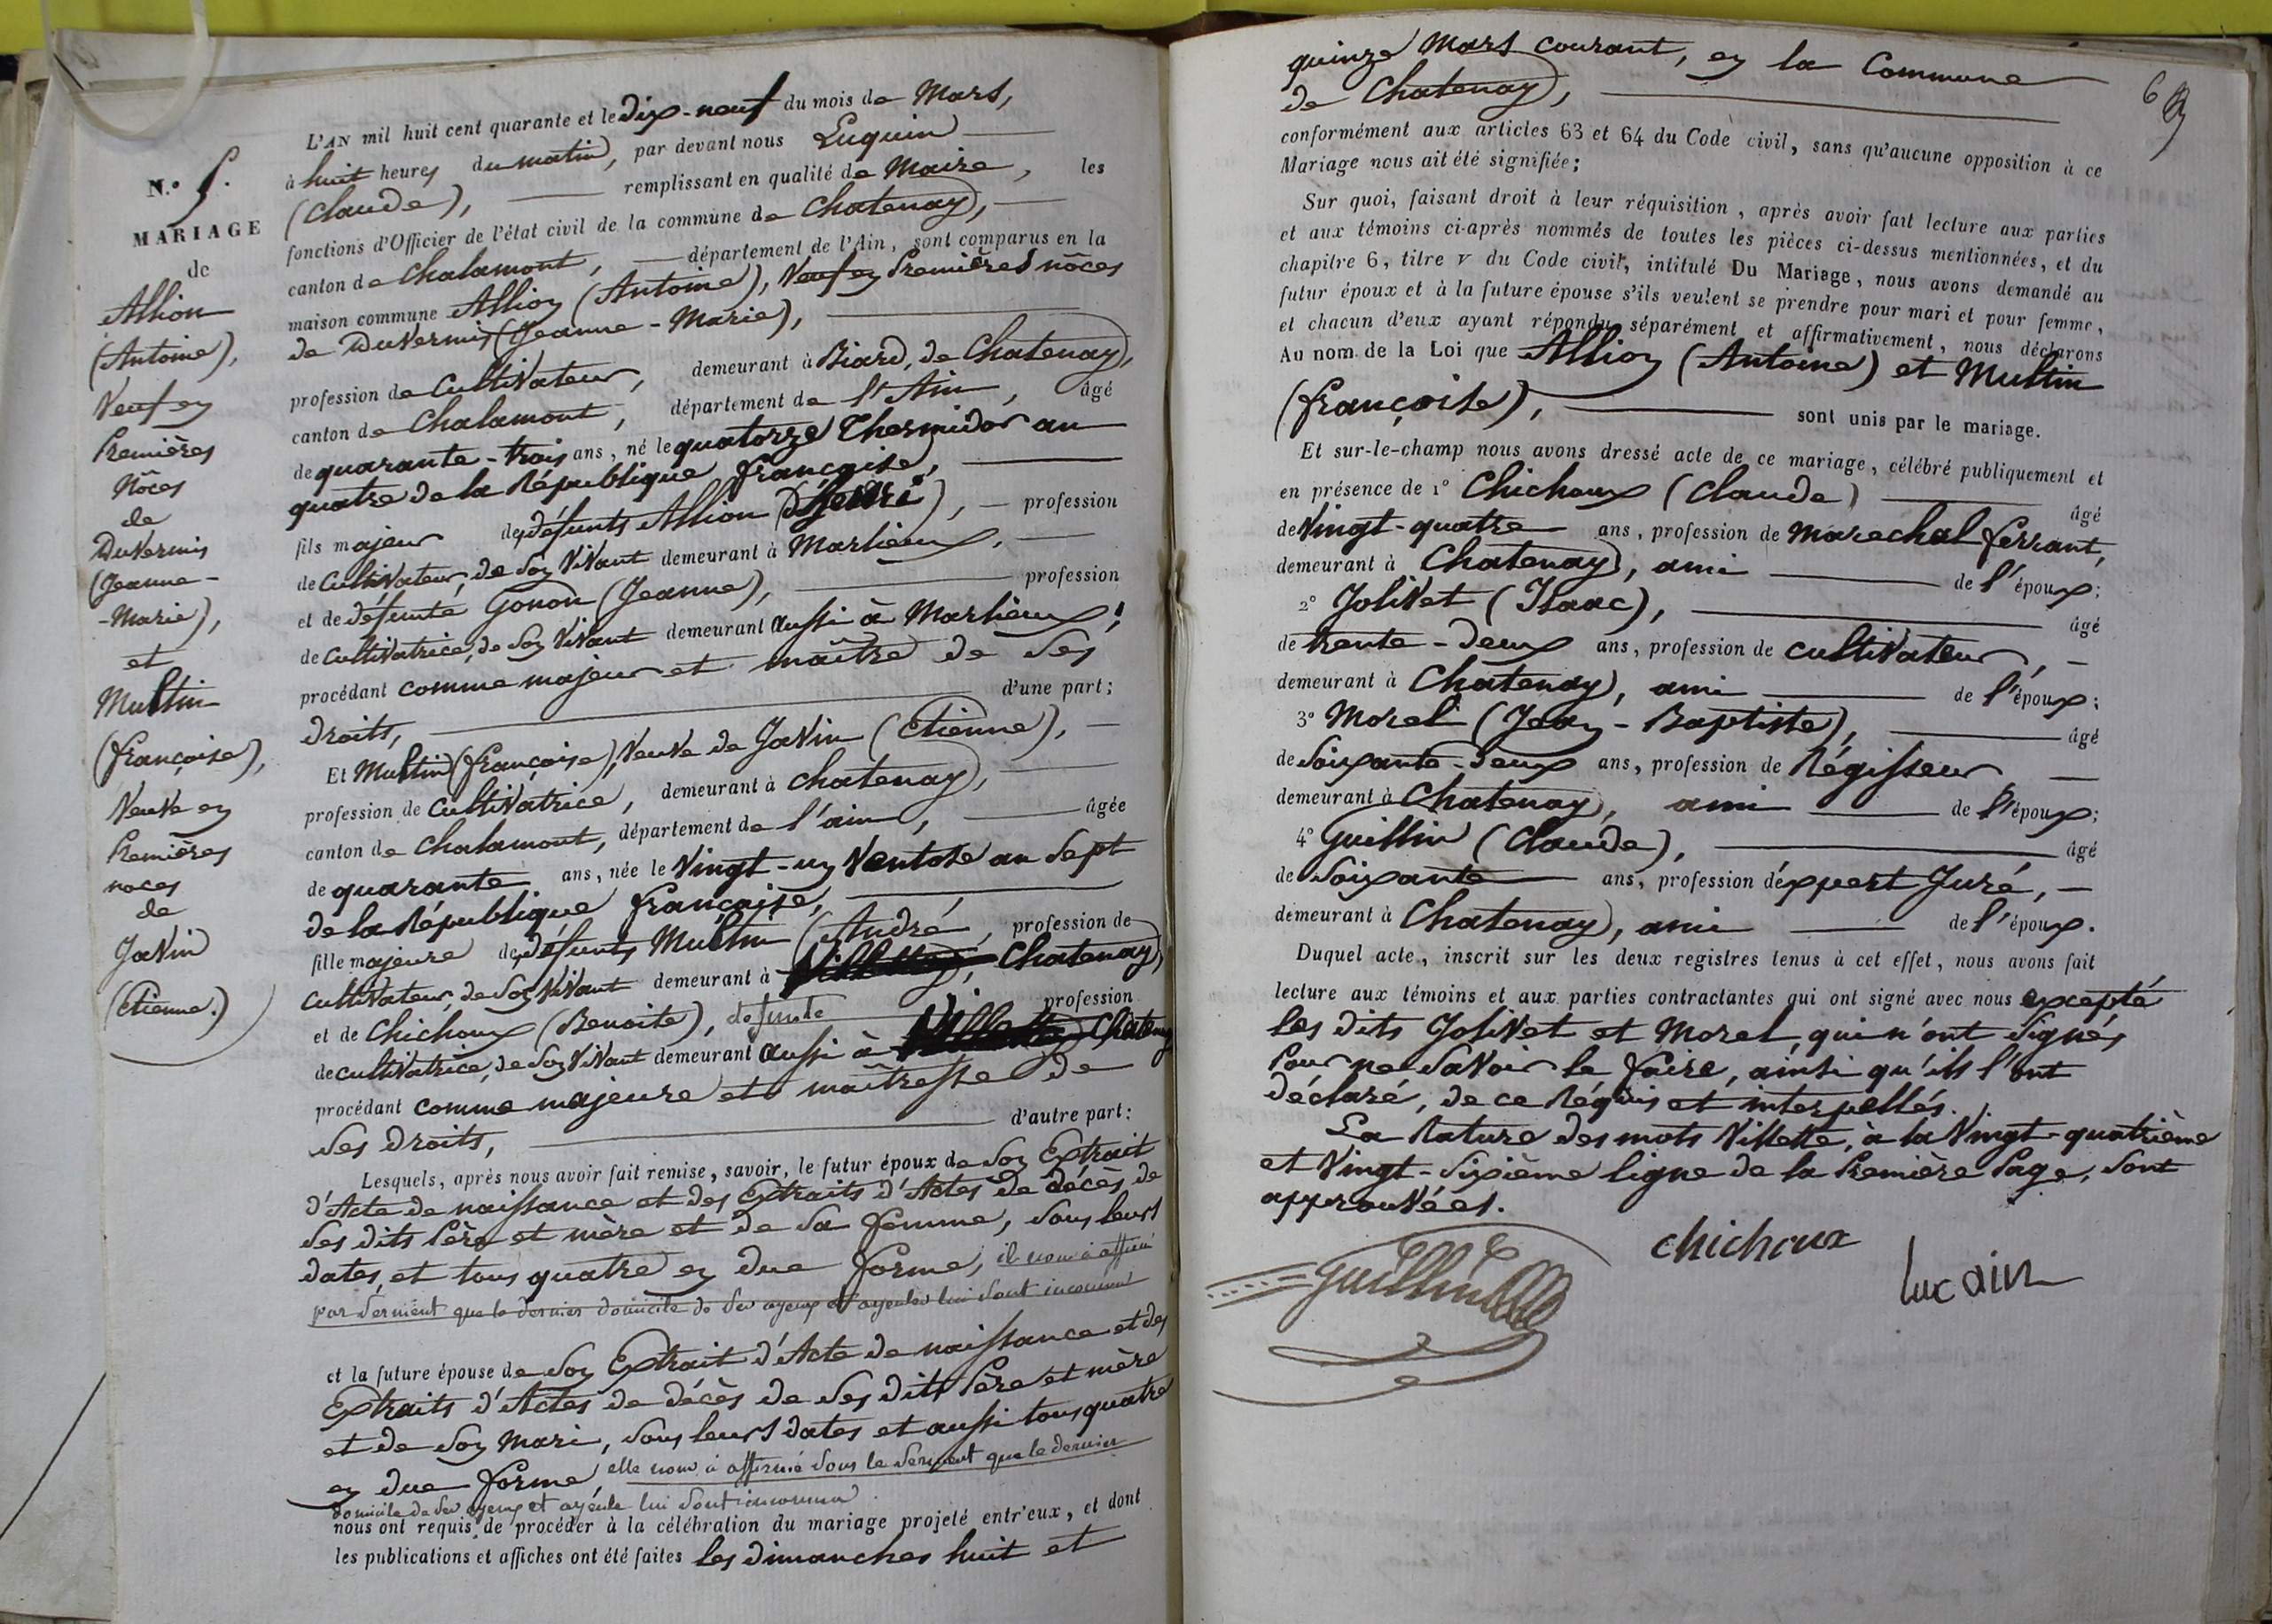 N.° 5.
MARIAGE
de
Allion
(Antoine),
Veuf en
Premières
Nôces
de
DuVernis
(Jeanne-
-Marie),
et
Multin
(françoise),
Veuve en
Premières
noces
de
JaVin
(Etienne.)
L'AN mil huit cent quarante et le Dix-neuf du mois de Mars,
à huit heures du matin, par devant nous Luquin
(Claude), remplissant en qualité de Maire, les
fonctions d'Officier de l'état civil de la commune de Chatenay,
canton de Chalamont, département de l'Ain, sont comparus en la
maison commune Allion (Antoine), Veuf en Premières nôces
de DuVernis (Jeanne-Marie),
profession de Cultivateur, demeurant à Biard, de Chatenay,
canton de Chalamont, département de l'Ain, âgé
de quarante-trois ans, né le quatorze Thermidor an
quatre de la République française,
fils majeur de défunts Allion (Henri), profession
de Cultivateur, de Son Vivant demeurant à Marlieux,
et de défunte Gonon (Jeanne), profession
de Cultivatrice, de Son Vivant demeurant aussi à Marlieux;
procédant comme majeur et maître de Ses
droits, d'une part;
Et Multin (françoise), Veuve de JaVin (Etienne),
profession de Cultivatrice, demeurant à Chatenay,
canton de Chalamont, département de l'ain, âgée
de quarante ans, née le Vingt-un Ventose an Sept
de la République française,
fille majeure de défunts Multin (André, profession de
Cultivateur, de Son Vivant demeurant à Villette, Chatenay,
et de Chichoux (Benoite), defunte profession
de Cultivatrice, de Son Vivant demeurant aussi à Villette, Chatenay
procédant comme majeure et maîtresse de
Ses droits, d'autre part:
Lesquels, après nous avoir fait remise, savoir, le futur époux de Son Extrait
d'Acte de naissance et des Extraits d'Actes de décès de
Ses dits Père et mère et de Sa femme, Sous leurs
dates, et tous quatre en due forme, il nous à affirmé
par Serment que le dernier domicile de Ses ayeux et ayeules lui Sont inconnus
et la future épouse de Son Extrait d'Acte de naissance et des
Extraits d'Actes de décès de Ses dits Père et mère
et de Son Mari, Sous leurs dates et aussi tous quatre
en due forme, elle nous à affirmé Sous le Serment que le dernier
domicile de Ses ayeux et ayeule lui Sont inconnu
nous ont requis de procéder à la célébration du mariage projeté entr'eux, et dont
les publications et affiches ont été faites les Dimanches huit et
quinze Mars courant, en la Commune
de Chatenay,
conformément aux articles 63 et 64 du Code civil, sans qu'aucune opposition à ce
Mariage nous ait été signifiée;
Sur quoi, faisant droit à leur réquisition, après avoir fait lecture aux parties
et aux témoins ci-après nommés de toutes les pièces ci-dessus mentionnées, et du
chapitre 6, titre v du Code civil, intitulé Du Mariage, nous avons demandé au
futur époux et à la future épouse s'ils veulent se prendre pour mari et pour femme,
et chacun d'eux ayant répondu séparément et affirmativement, nous déclarons
Au nom de la Loi que Allion (Antoine) et Multin
(françoise), sont unis par le mariage.
Et sur-le-champ nous avons dressé acte de ce mariage, célébré publiquement et
en présence de 1° Chichoux (Claude) âgé
de Vingt-quatre ans, profession de Marechal ferrant,
demeurant à Chatenay, ami de l'époux;
2° JoliVet (Isaac), âgé
de trente-Deux ans, profession de cultivateur,
demeurant à Chatenay, ami de l'époux;
3° Morel (Jean-Baptiste), âgé
de Soixante-Deux ans, profession de Régisseur
demeurant à Chatenay, ami de l'époux;
4° Guillin (Claude), âgé
de Soixante ans, profession d'expert Juré,
demeurant à Chatenay, ami de l'époux.
Duquel acte, inscrit sur les deux registres tenus à cet effet, nous avons fait
lecture aux témoins et aux parties contractantes qui ont signé avec nous excepté
les dits JoliVet et Morel, qui n'ont Signés
Pour ne SaVoir le faire, ainsi qu'ils l'ont
déclaré, de ce Réquis et interpellés.
La Rature des mots Villette, à la Vingt-quatrième
et Vingt-Sixième ligne de la Première Page, Sont
approuVées.
Guillin
chichoux